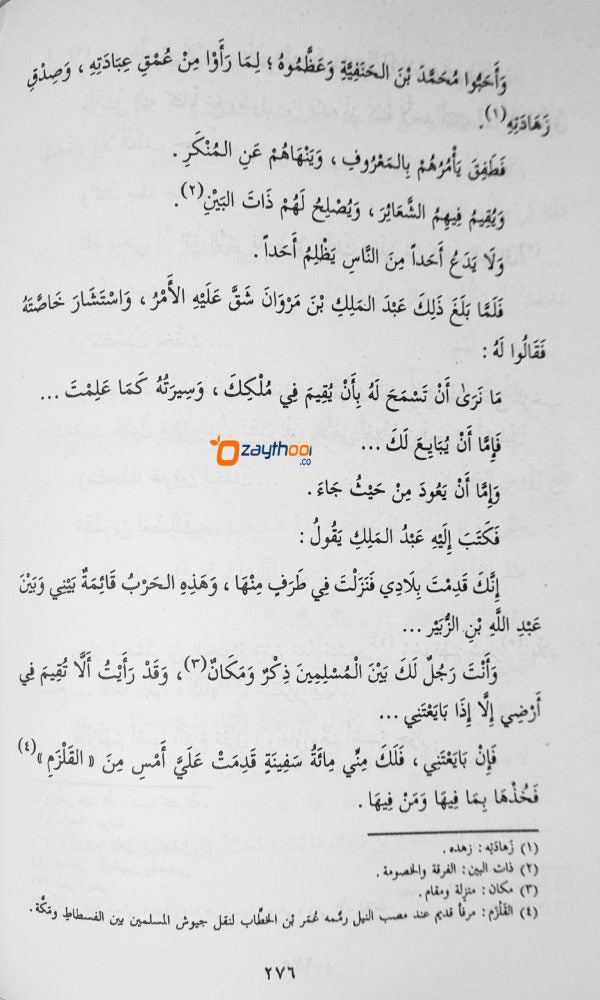 وَأَحَبُّوا مُحَمَّدَ بْنَ الحَنَفِيَّةِ وَعَظَّمُوهُ ؛ لِمَا رَأَوْا مِنْ عُمْقِ عِبَادَتِهِ ، وَصِدْقِ
زَهَادَتِهِ(١).
فَطَفِقَ يَأْمُرُهُمْ بِالمَعْرُوفِ ، وَيَنْهَاهُمْ عَنِ المُنْكَرِ .
وَيُقِيمُ فِيهِمُ الشَّعَائِرَ ، وَيُصْلِحُ لَهُمْ ذَاتَ البَيْنِ(٢).
وَلَا يَدَعُ أَحَداً مِنَ النَّاسِ يَظْلِمُ أَحَداً .
فَلَمَّا بَلَغَ ذَلِكَ عَبْدَ المَلِكِ بْنَ مَرْوَانَ شَقَّ عَلَيْهِ الأَمْرُ ، وَاسْتَشَارَ خَاصَّتَهُ
فَقَالُوا لَهُ :
مَا نَرَىٰ أَنْ تَسْمَحَ لَهُ بِأَنْ يُقِيمَ فِي مُلْكِكَ ، وَسِيرَتُهُ كَمَا عَلِمْتَ ...
فَإِمَّا أَنْ يُبَايِعَ لَكَ ...
zaythoon
.co
وَإِمَّا أَنْ يَعُودَ مِنْ حَيْثُ جَاءَ .
فَكَتَبَ إِلَيْهِ عَبْدُ المَلِكِ يَقُولُ :
إِنَّكَ قَدِمْتَ بِلَادِي فَنَزَلْتَ فِي طَرَفٍ مِنْهَا ، وَهَذِهِ الحَرْبُ قَائِمَةٌ بَيْنِي وَبَيْنَ
عَبْدِ اللَّهِ بْنِ الزُّبَيْرِ ...
وَأَنْتَ رَجُلٌ لَكَ بَيْنَ الْمُسْلِمِينَ ذِكْرٌ وَمَكَانٌ(٣)، وَقَدْ رَأَيْتُ أَلَّا تُقِيمَ فِي
أَرْضِي إِلَّا إِذَا بَايَعْتَنِي ...
فَإِنْ بَايَعْتَنِي ، فَلَكَ مِنِّي مِائَةُ سَفِينَةٍ قَدِمَتْ عَلَيَّ أَمْسِ مِنَ « القَلْزَمِ »(٤)
فَخُذْهَا بِمَا فِيهَا وَمَنْ فِيهَا .
(١) زَهَادَتِه : زهده .
(٢) ذات البين : الفرقة والخصومة .
(٣) مكان : منزلة ومقام .
(٤) القَلْزَم : مرفأ قديم عند مصب النيل رممه عُمَر بْن الخطَّاب لنقل جيوش المسلمين بين الفسطاط ومَكَّة .
٢٧٦